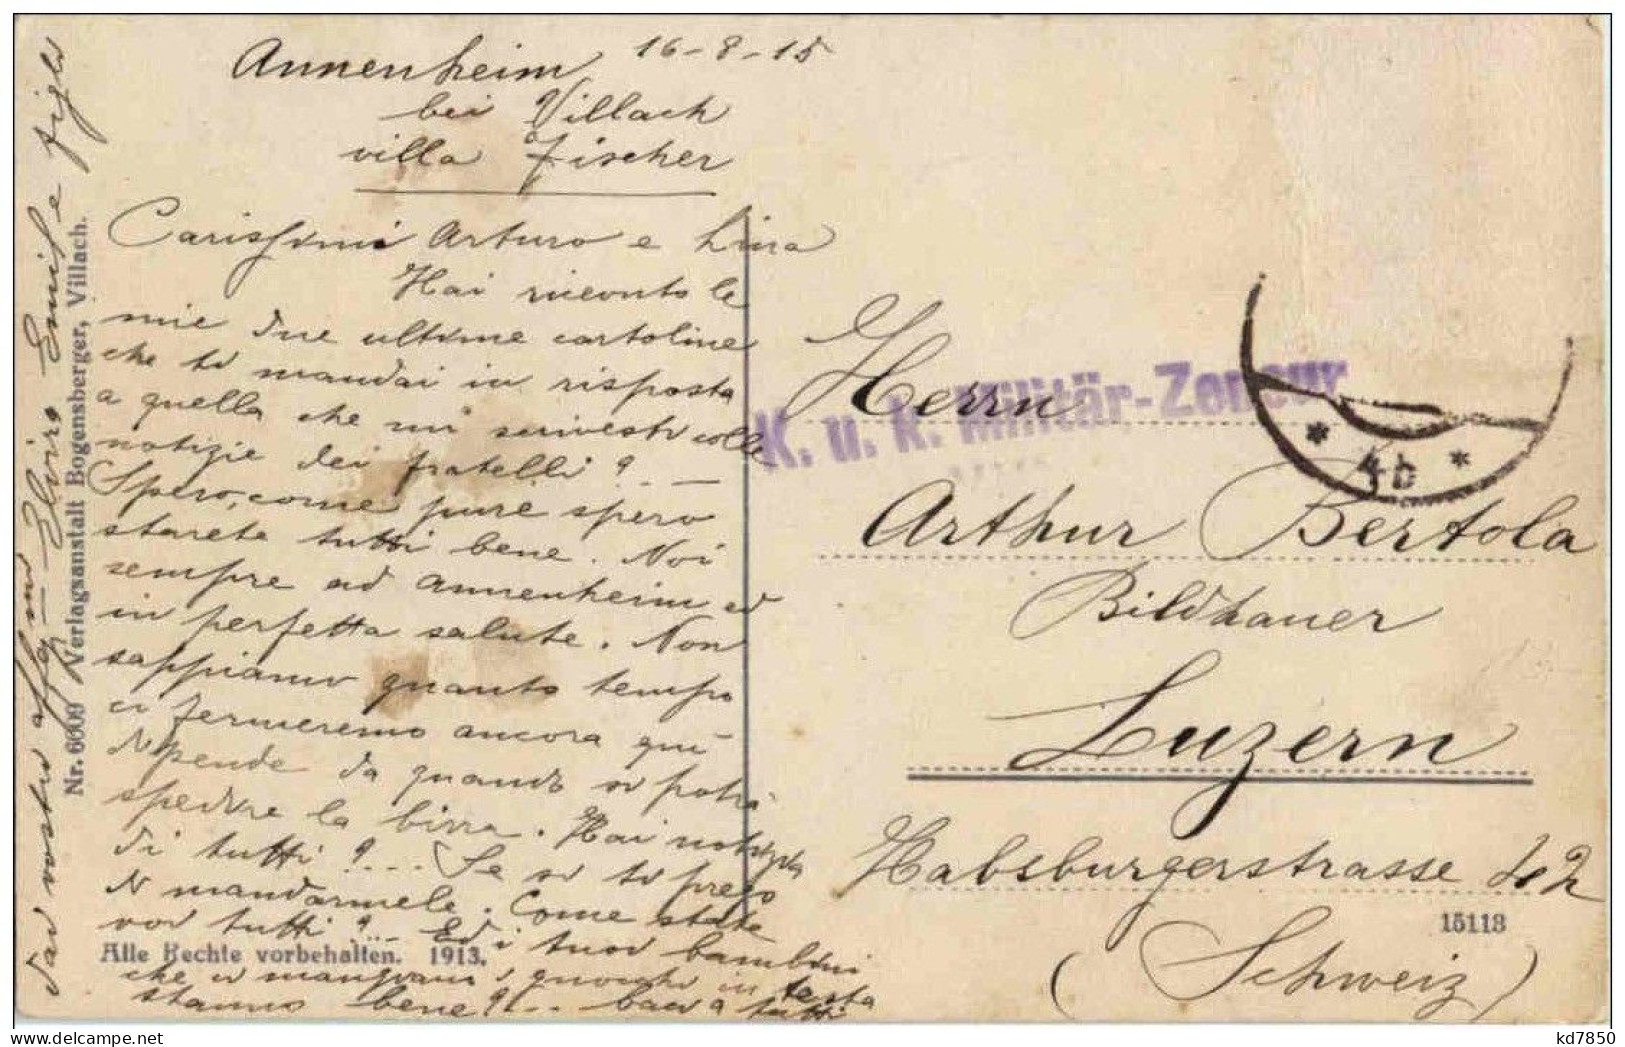 Annenheim 16-8-15
bei Villach
villa Fischer
Carissimi Arturo e Lina
Hai ricevuto le
mie due ultime cartoline
che ti mandai in risposta
a quella che mi scrivesti colle
notizie dei fratelli? . _
Spero, come pure spero
starete tutti bene. Noi
sempre ad Annenheim ed
in perfetta salute. Non
sappiamo quanto tempo
ci fermeremo ancora qui
dipende da quando si potrà
spedire la birra. Hai notizie
di tutti? ... Se si ti prego
di mandarmele. Come state
voi tutti? _ Ed i tuoi bambini
che ci mangiano i gnocchi in testa
stanno bene? .. baci a tutti
dai vostri aff.mi
Elvira Emil e figlo
Nr. 6609 Verlagsanstalt Bogensberger, Villach.
Alle Rechte vorbehalten. 1913.
K. u. k. Militär-Zensur
* 4b *
Herrn
Arthur Bertola
Bildhauer
Luzern
Habsburgerstrasse 42
15113
(Schweiz)
kd7850